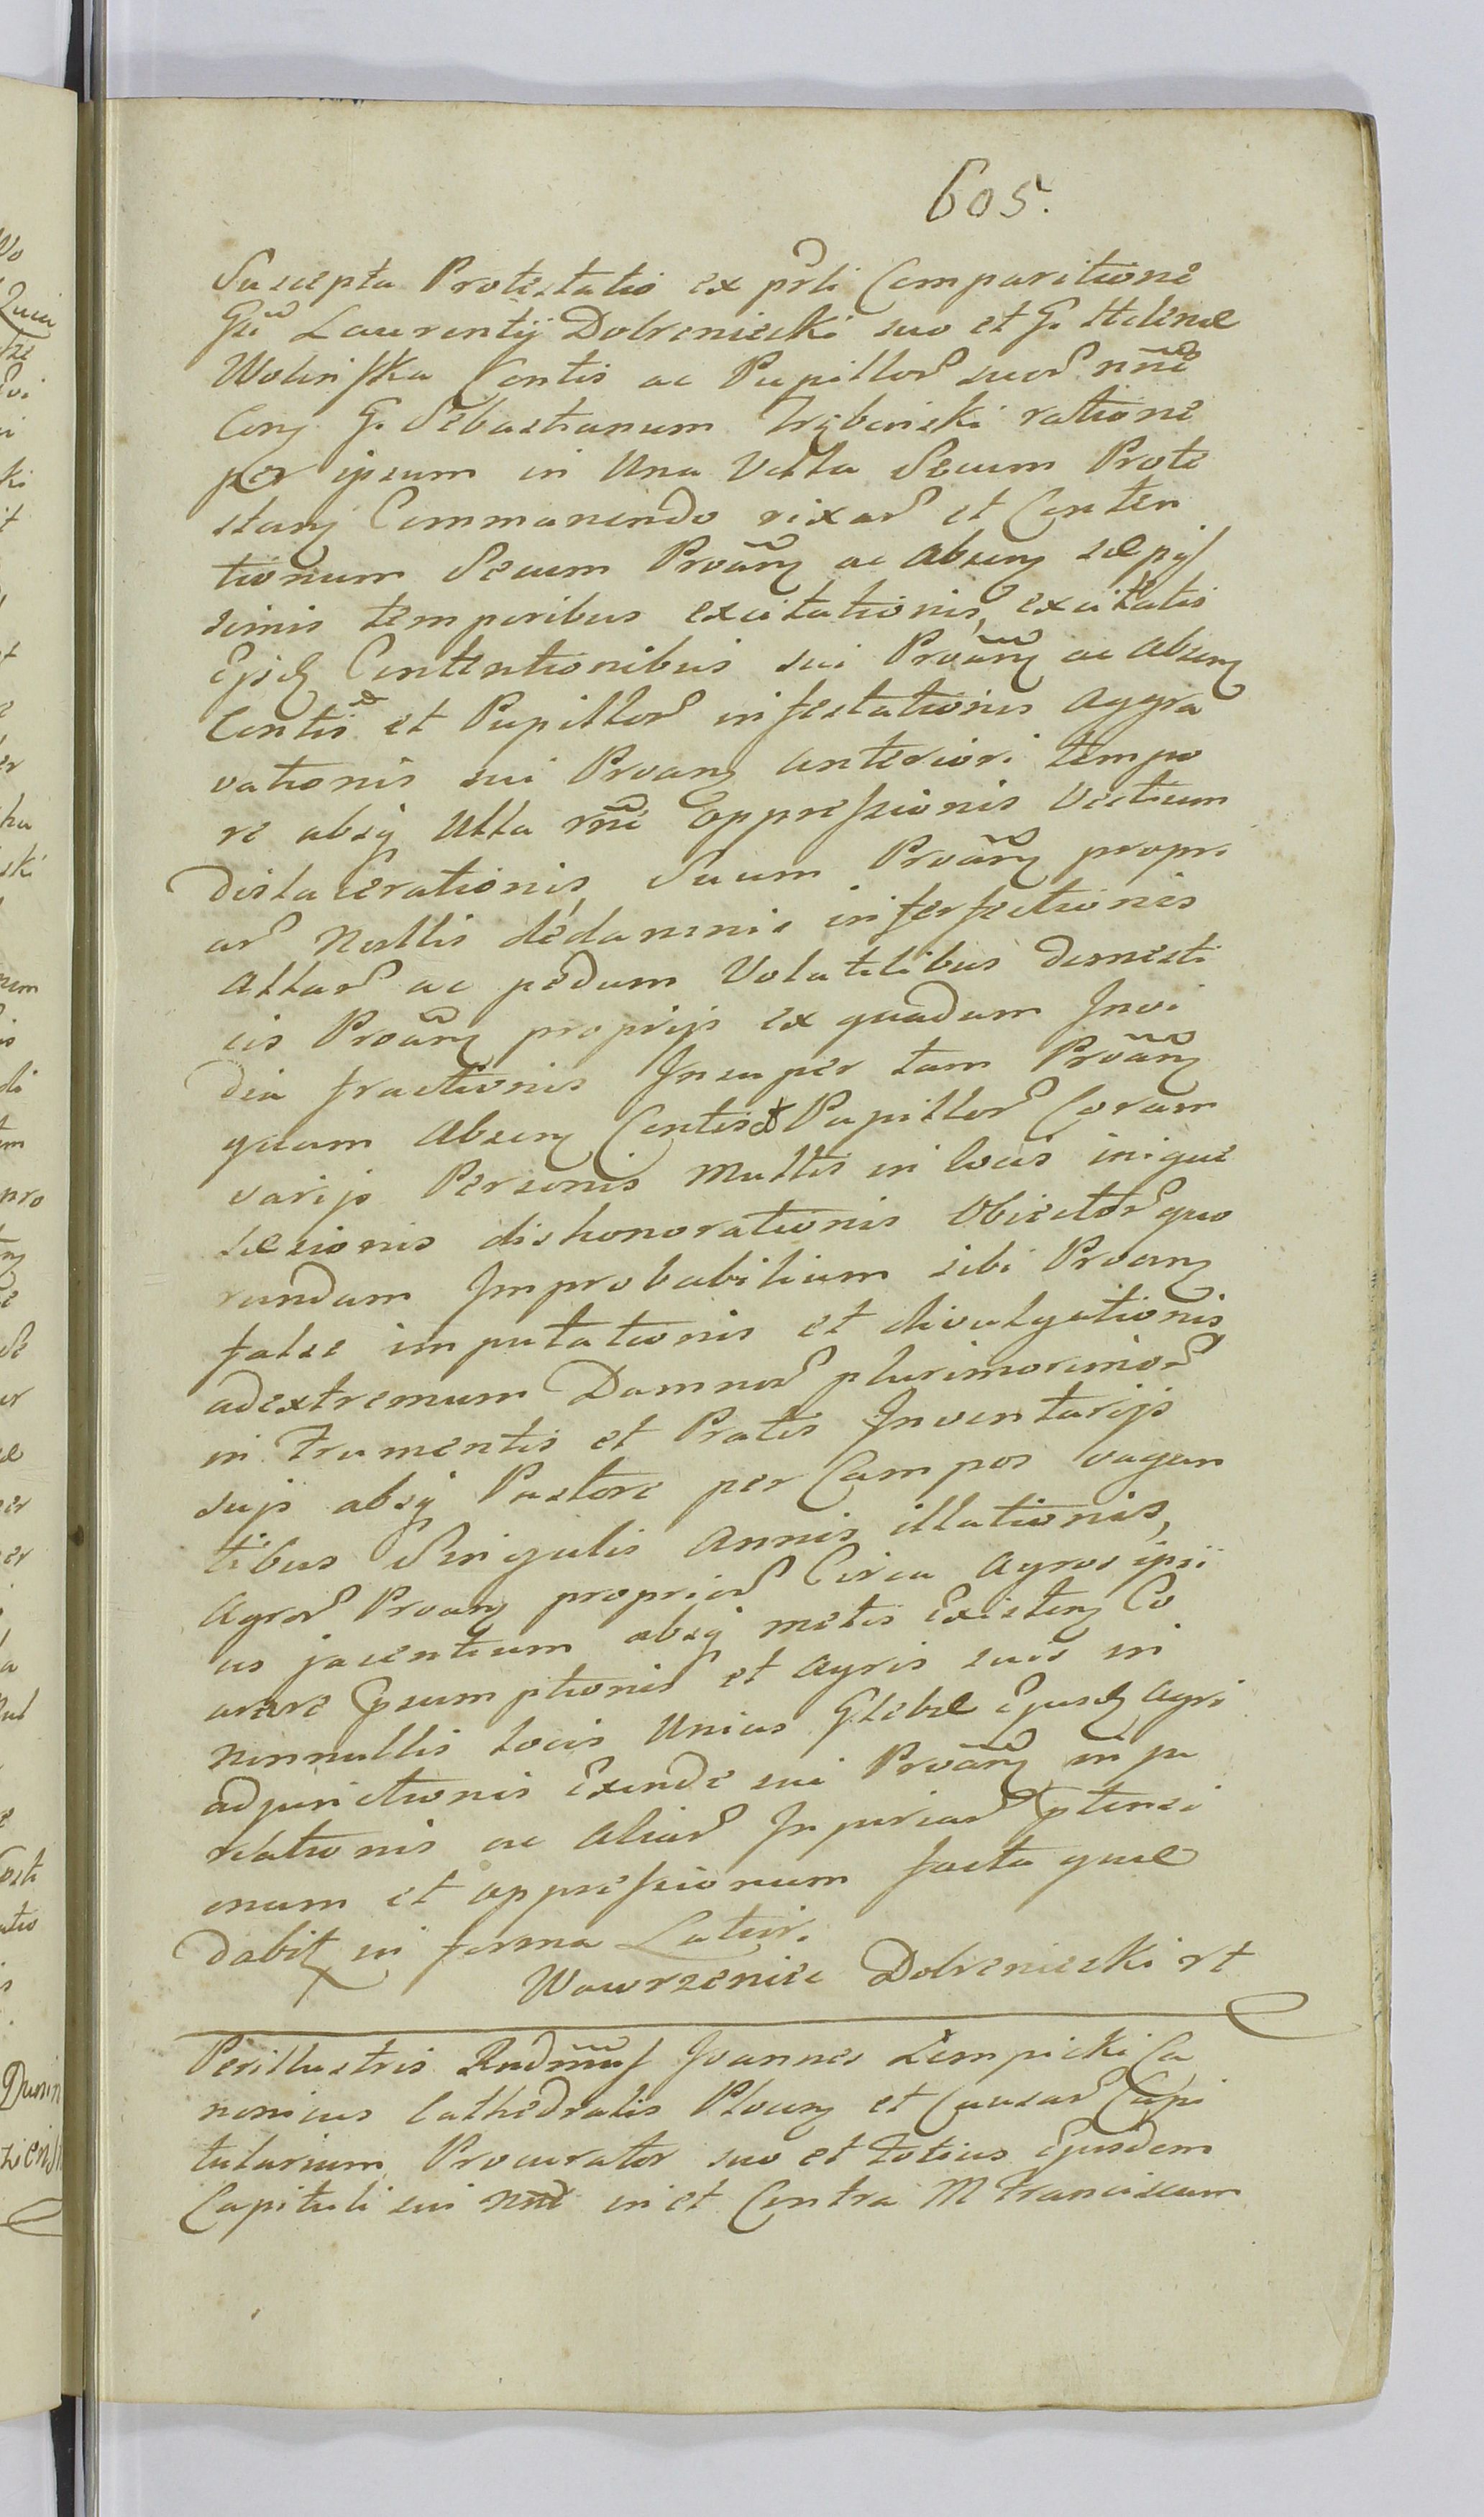 605.
Suscepta Protestatio ex prli Comparitione
Gsi Laurentij Dobrenieski suo et G. Helenæ
Wolinska Contis ac Pupillor suor nne
Con G. Sebastianum ratione
per ipsum in Una Villa Secum Prote
stan Commanendo rixar et Conten
tionum Secum Proan ac absen sæpis
simis temporibus excitationis, excitatis
Ejsd Contentionibus sui Proan ac absen
Contis et Pupillor infestationis aggra
vationis sui Proan anteriori tempo
re absq Ulla rne oppressionis Vectium
dislacerationis, Suum Proan propri
ar Nullis de damnis interfectionis
allar ac pedum Volatilibus domesti
cis Proan proprijs ex quadam Invi
dia fractionis Insuper tam Proan
quam absen Contis et Pupillor Coram
varijs Personis Multis in locis inique
sæsionis dishonorationis Obiector quo
rundam Improbabilium sibi Proan
false imputationis et divulgationis
adextremum Damnor plurimorimor
in frumentis et Pratis Inventarijs
sujs absq Pastore per Campos vagan
tibus Singulis Annis illationis,
Agror Proan proprior Circa Agros ipsi
us jacentium absq metis Existen Co
arare psumptionis et agris suis in
nonnullis locis Unius Glebæ Ejusd agri
adjunctionis Exinde sui Proan in ju
riationis ac aliar Injuriar ptensi
onum et oppressionum facta quæ
dabit in forma Latior.
Wawrzeniec Dobrenieski rt
Perillustris Rndmus Joannes Lempicki Ca
nonicus Cathedralis Plocen et Causar Capi
tularium Procurator suo et totius Ejusdem
Capituli sui nne in et Contra M Franciscum